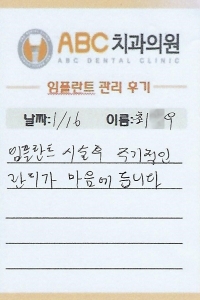 ABC 치과의원
ABC DENTAL CLINIC
임플란트 관리 후기
날짜: 1/16 이름: 최 우
임플란트 시술후 주기적인
관리가 마음에 듭니다